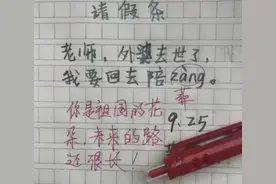 请假条
老师，外婆去世了，
我要回去陪zàng。
葬
你是祖国的花
9.25
朵 未来的路
还很长！